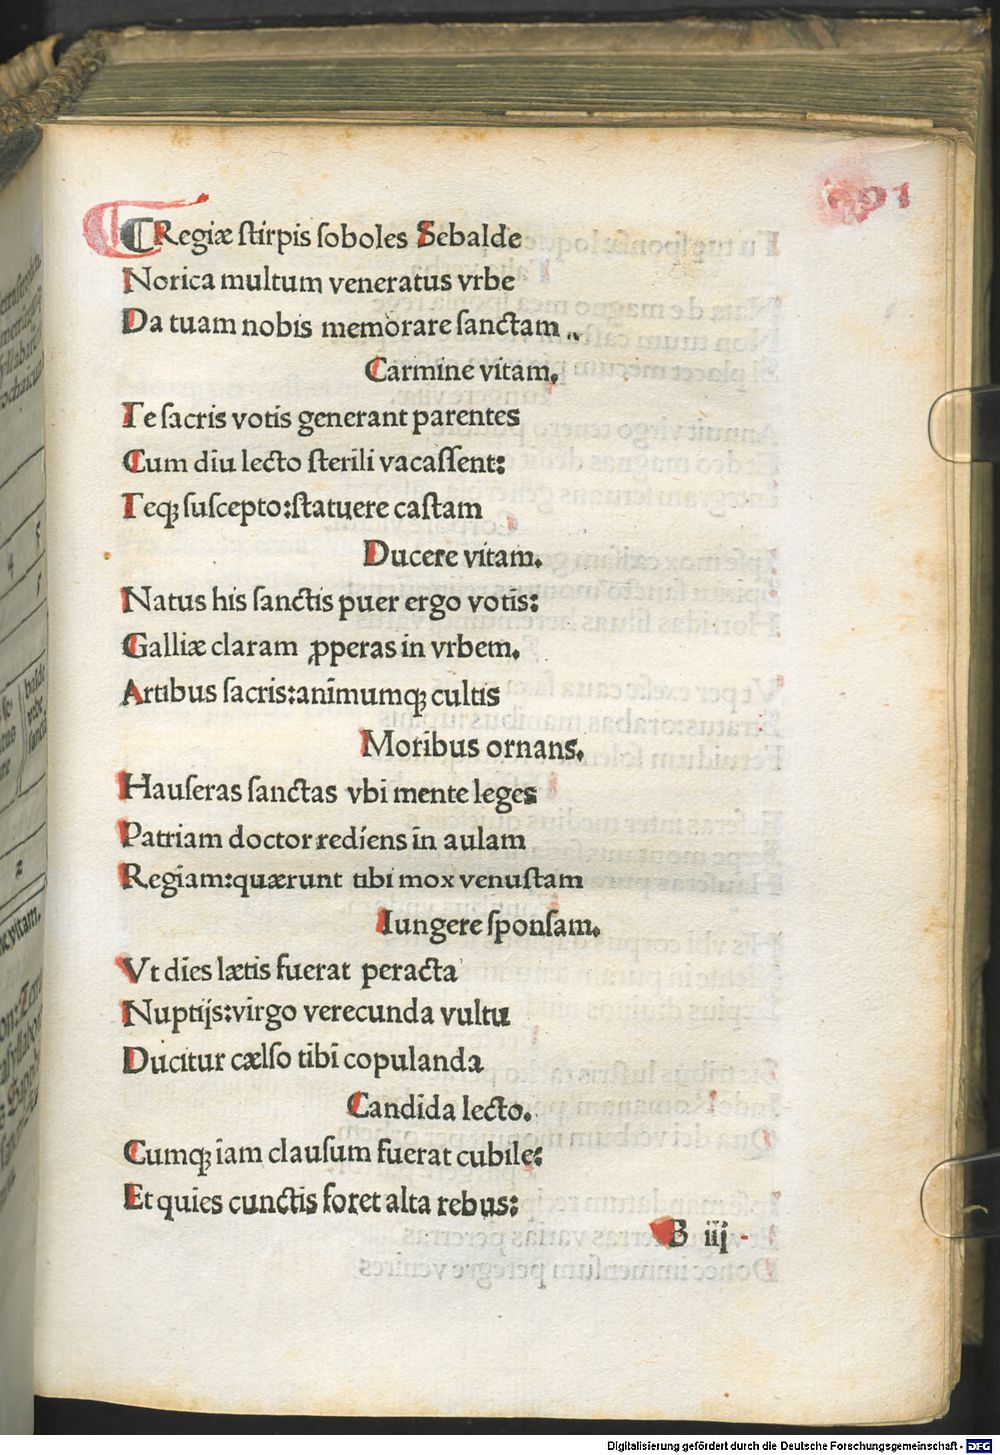 Regiæ ſtirpis ſoboles Sebalde
Norica multum veneratus vrbe
Da tuam nobis memorare ſanctam
Carmine vitam.
Te ſacris votis generant parentes
Cum diu lecto ſterili vacaſſent:
Teqꝫ ſuſcepto:ſtatuere caſtam
Ducere vitam.
Natus his ſanctis puer ergo votis:
Galliæ claram ꝓperas in vrbem.
Artibus ſacris:animumqꝫ cultis
Moribus ornans.
Hauſeras ſanctas vbi mente leges
Patriam doctor rediens in aulam
Regiam:quærunt tibi mox venuſtam
Iungere ſponſam.
Vt dies lætis fuerat peracta
Nuptijs:virgo verecunda vultu
Ducitur cælſo tibi copulanda
Candida lecto.
Cumqꝫ iam clauſum fuerat cubile:
Et quies cunctis foret alta rebus:
B iij
Digitalisierung gefördert durch die Deutsche Forschungsgemeinschaft - DFG